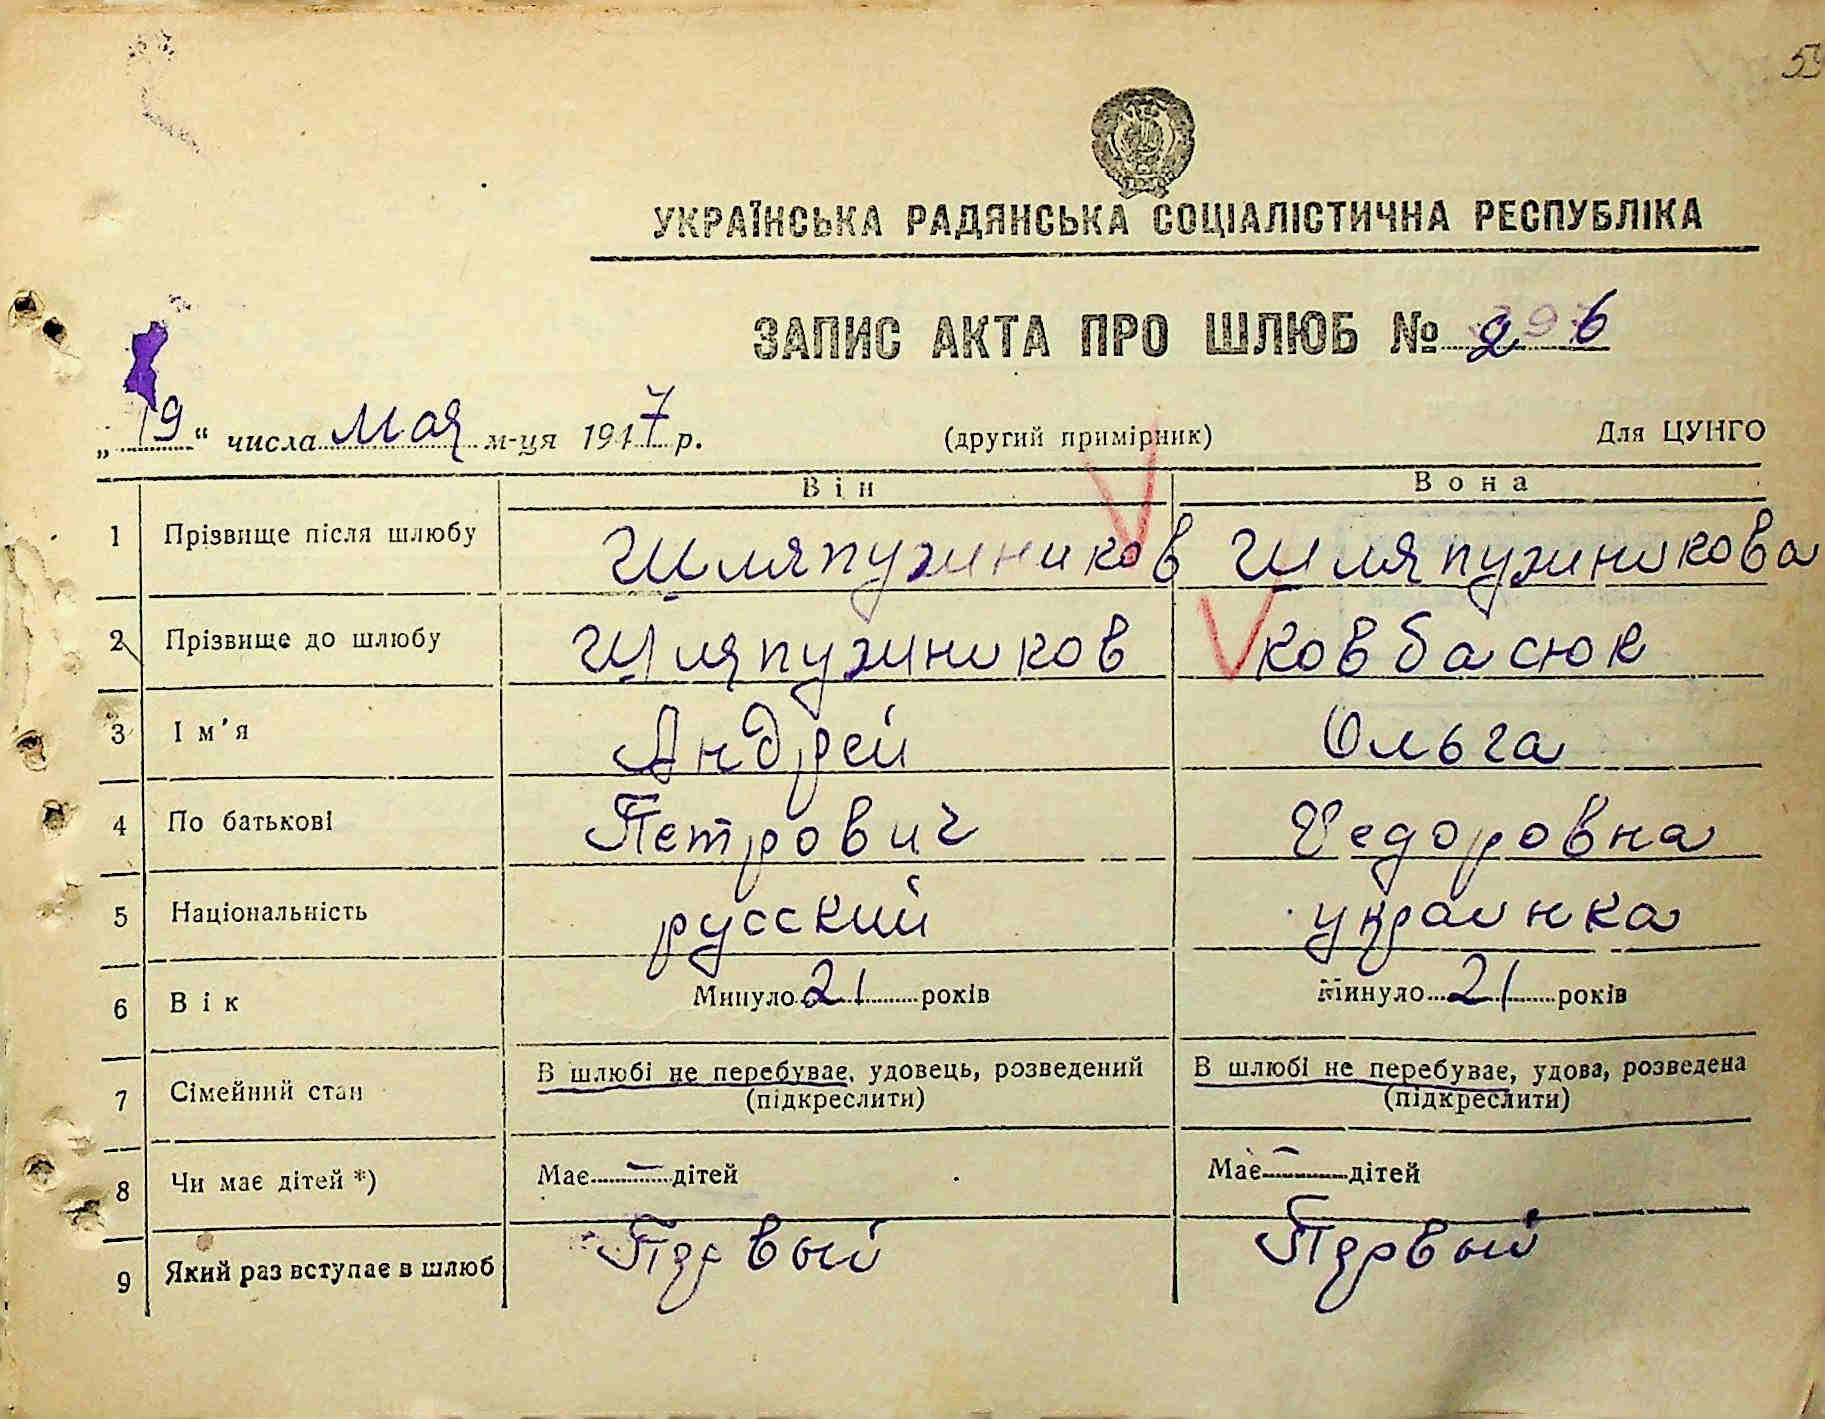 УКРАЇНСЬКА РАДЯНСЬКА СОЦІАЛІСТИЧНА РЕСПУБЛІКА
ЗАПИС АКТА ПРО ШЛЮБ № 296
„19“ числа Мая м-ця 1947 р. (другий примірник) Для ЦУНГО
Він Вона
1 Прізвище після шлюбу Шляпужников Шляпужникова
2 Прізвище до шлюбу Шляпужников Ковбасюк
3 Ім'я Андрей Ольга
4 По батькові Петрович Федоровна
5 Національність русский украинка
6 Вік Минуло 21 років Минуло 21 років
7 Сімейний стан В шлюбі не перебуває, удовець, розведений В шлюбі не перебуває, удова, розведена
(підкреслити) (підкреслити)
8 Чи має дітей *) Має — дітей Має — дітей
9 Який раз вступає в шлюб Первый Первый